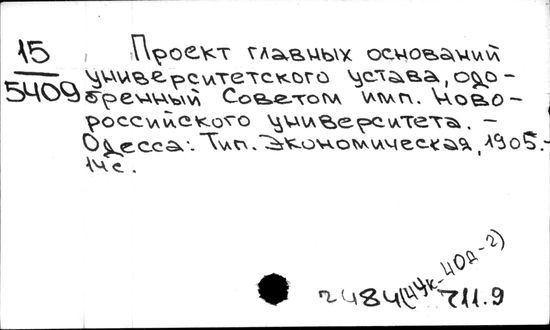 15
5409
Проект главных оснований
университетского устава, одо-
бренный Советом имп. Ново-
российского университета. –
Одесса: Тип. Экономическая, 1905.-
14с.
2484 (4Ук-40д-2) 711.9